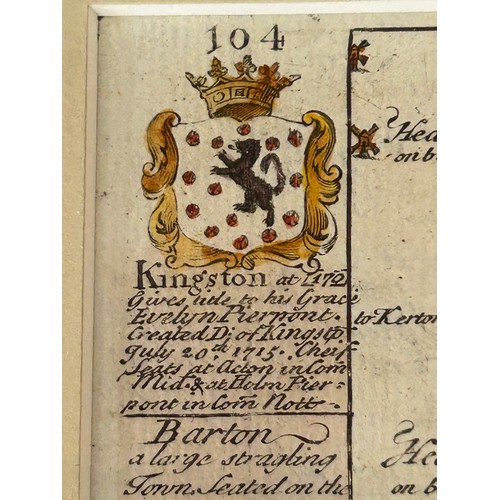 104
Kingston at [172]
Gives title to his Grace
Evelyn Pierpont.
Created D: of Kingsto
July 20th 1715. Cheif
Seats at Acton in Com
Mid. & at Holm Pier-
pont in Com Nott-
Barton
a large stragling
Town. Seated on the
Hea
on b
to Kerton
Hea
on b